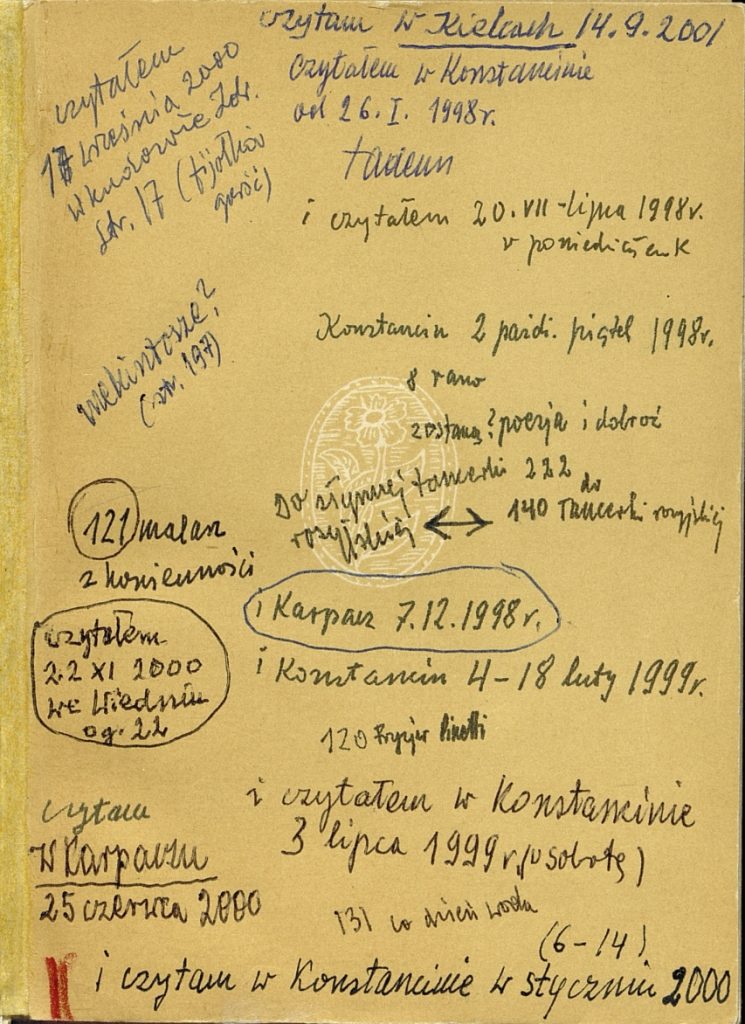 czytam w Kielcach 14.9.2001
czytałem
17 września 2000
w Kudowie Zdr.
str. 17 (fijołków
garść)
Czytałem w Konstancinie
od 26.I. 1998r.
Tadeusz
i czytałem 20.VII-lipca 1998r.
w poniedziałek
mekintosze?
(str. 197)
Konstancin 2 paźdź. piątek 1998r.
8 rano
zostaną? poezja i dobroć
Do słynnej tancerki 222
rosyjskiej ↔ do
140 Tancerki rosyjskiej
121 malarz
z konieczności
i Karpacz 7.12.1998r.
czytałem
22 XI 2000
we Wiedniu
og. 22
i Konstancin 4-18 luty 1999r.
120
i czytałem w Konstancinie
3 lipca 1999r. (w sobotę)
czytam
w Karpaczu
25 czerwca 2000
131 co dzień woda
(6-14)
i czytam w Konstancinie w styczniu 2000